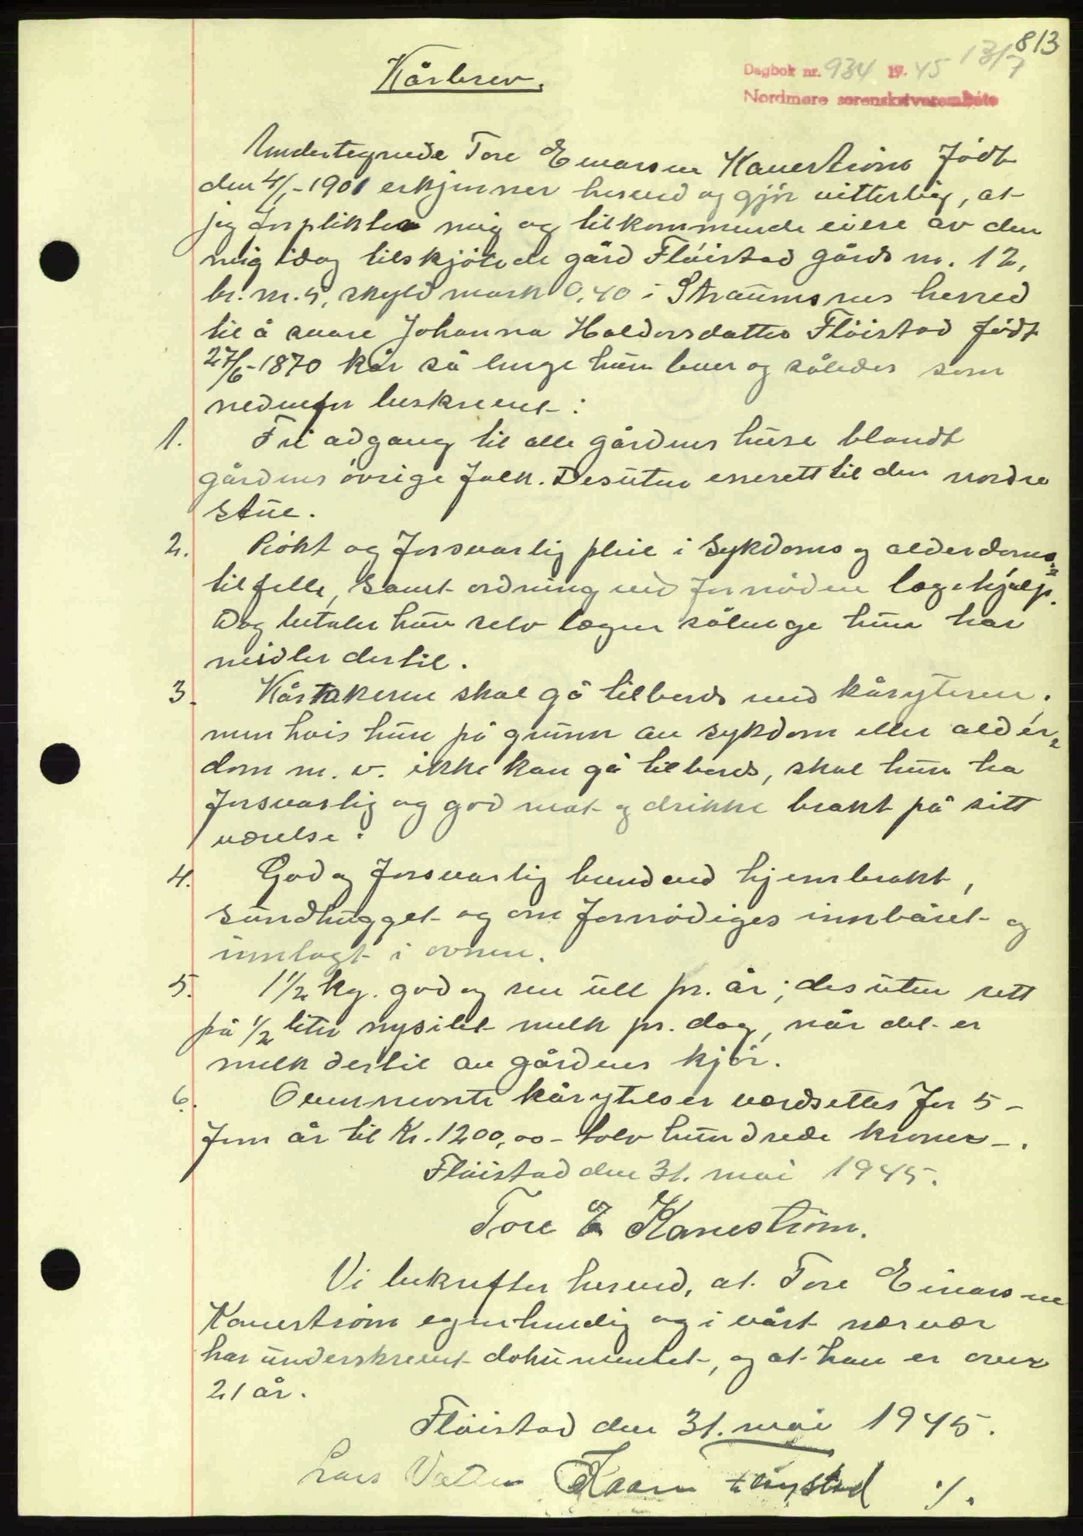 813
13/7
Kårbrev.
Dagbok nr. 934 19 45
Nordmøre sorenskriverembete
Undertegnede Tore Einarsen Kanestrøm født
den 4/1-1901 erkjenner herved og gjør vitterlig, at
jeg forplikter mig og tilkommende eiere av den
mig idag tilskjøtede gård Fløistad gårds nr. 12,
br. nr. 5, skyld mark 0,40 i Straumsnes herred
til å svare Johanna Haldorsdatter Fløistad født
27/6-1870 kår så lenge hun lever og således som
nedenfor beskrevet:
1. Fri adgang til alle gårdens huse blandt
gårdens øvrige folk. Desuten enerett til den nordre
stue.
2. Røkt og forsvarlig pleie i sykdoms og alderdoms=
tilfelle, samt ordning med fornøden lægehjelp.
Dog betaler hun selv lægen sålenge hun har
midler dertil.
3. Kårtakeren skal gå tilbords med kåryteren,
men hvis hun på grunn av sykdom eller alder=
dom m. v. ikke kan gå tilbords, skal hun ha
forsvarlig og god mat og drikke brakt på sitt
værelse.
4. God og forsvarlig brendved hjembrakt,
sundhugget og om fornødiges innbåret og
innlagt i ovnen.
5. 1 1/2 kg. god og ren ull pr. år; desuten rett
på 1/2 liter nysilet melk pr. dag, når det er
melk dertil av gårdens kjør.
6. Ovennevnte kårytelser verdsettes for 5-
fem år til Kr. 1200,00 - tolv hundrede kroner -.
Fløistad den 31. mai 1945.
Tore E Kanestrøm.
Vi bekrefter herved, at Tore Einarsen
Kanestrøm egenhendig og i vårt nærvær
har underskrevet dokumentet, og at han er over
21 år.
Fløistad den 31. mai 1945.
Lars Fløystad ./.